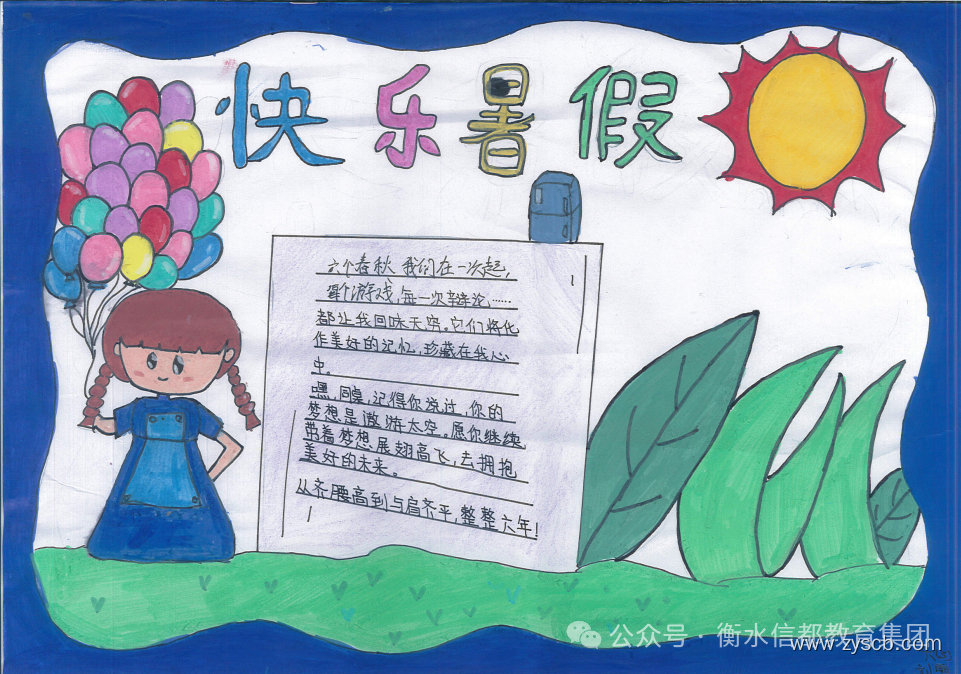 快乐暑假
六个春秋 我们在一次起，
每个游戏，每一次辩论，……
都让我回味天穷。它们将化
作美好的记忆，珍藏在我心
中。
嘿，同桌，记得你说过，你的
梦想是遨游太空。愿你继续
带着梦想展翅高飞，去拥抱
美好的未来。
从齐腰高到与肩齐平，整整六年！
公众号·衡水信都教育集团
www.zyscb.com